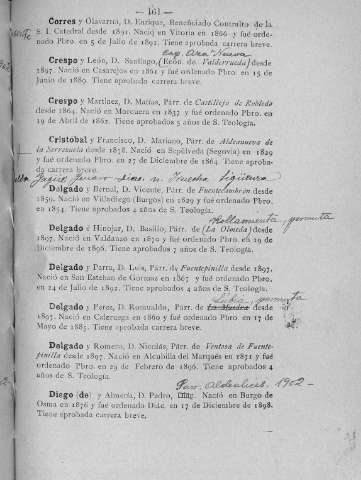 — 161 —
Corres y Olavarra, D. Enrique, Beneficiado Contralto de la
S. I. Catedral desde 1891. Nació en Vitoria en 1866 y fué orde-
nado Pbro. en 5 de Julio de 1891. Tiene aprobada carrera breve.
Crespo y León, D. Santiago, Ecón. de Valderrueda desde
1897. Nació en Casarejos en 1861 y fué ordenado Pbro. en 15 de
Junio de 1889. Tiene aprobada carrera breve.
Crespo y Martínez, D. Matías, Párr. de Castillejo de Robledo
desde 1864. Nació en Morcuera en 1837 y fué ordenado Pbro. en
19 de Abril de 1862. Tiene aprobados 5 años de S. Teología.
Cristóbal y Francisco, D. Mariano, Párr. de Aldeanueva de
la Serrezuela desde 1858. Nació en Sepúlveda (Segovia) en 1829
y fué ordenado Pbro. en 27 de Diciembre de 1864. Tiene aproba-
da carrera breve.
Delgado y Bernal, D. Vicente, Párr. de Fuentecambrón desde
1859. Nació en Villadiego (Burgos) en 1829 y fué ordenado Pbro.
en 1854. Tiene aprobados 4 años de S. Teología.
Rollamienta, permuta
Delgado é Hinojar, D. Basilio, Párr. de (La Olmeda) desde
1897. Nació en Valdanzo en 1870 y fué ordenado Pbro. en 19 de
Diciembre de 1896. Tiene aprobados 7 años de S. Teología.
Delgado y Parra, D. Luis, Párr. de Fuentepinilla desde 1897.
Nació en San Esteban de Gormaz en 1867 y fué ordenado Pbro.
en 24 de Julio de 1892. Tiene aprobados 4 años de S. Teología.
Lubia, permuta
Delgado y Perez, D. Romualdo, Párr. de La Muedra desde
1897. Nació en Caleruega en 1860 y fué ordenado Pbro. en 17 de
Mayo de 1885. Tiene aprobada carrera breve.
Delgado y Romero, D. Nicolás, Párr. de Ventosa de Fuente-
pinilla desde 1897. Nació en Alcubilla del Marqués en 1871 y fué
ordenado Pbro. en 29 de Febrero de 1896. Tiene aprobados 4
años de S. Teología.
1902 –
Diego (de) y Almería, D. Pedro, Diác. Nació en Burgo de
Osma en 1876 y fué ordenado Diác. en 17 de Diciembre de 1898.
Tiene aprobada carrera breve.